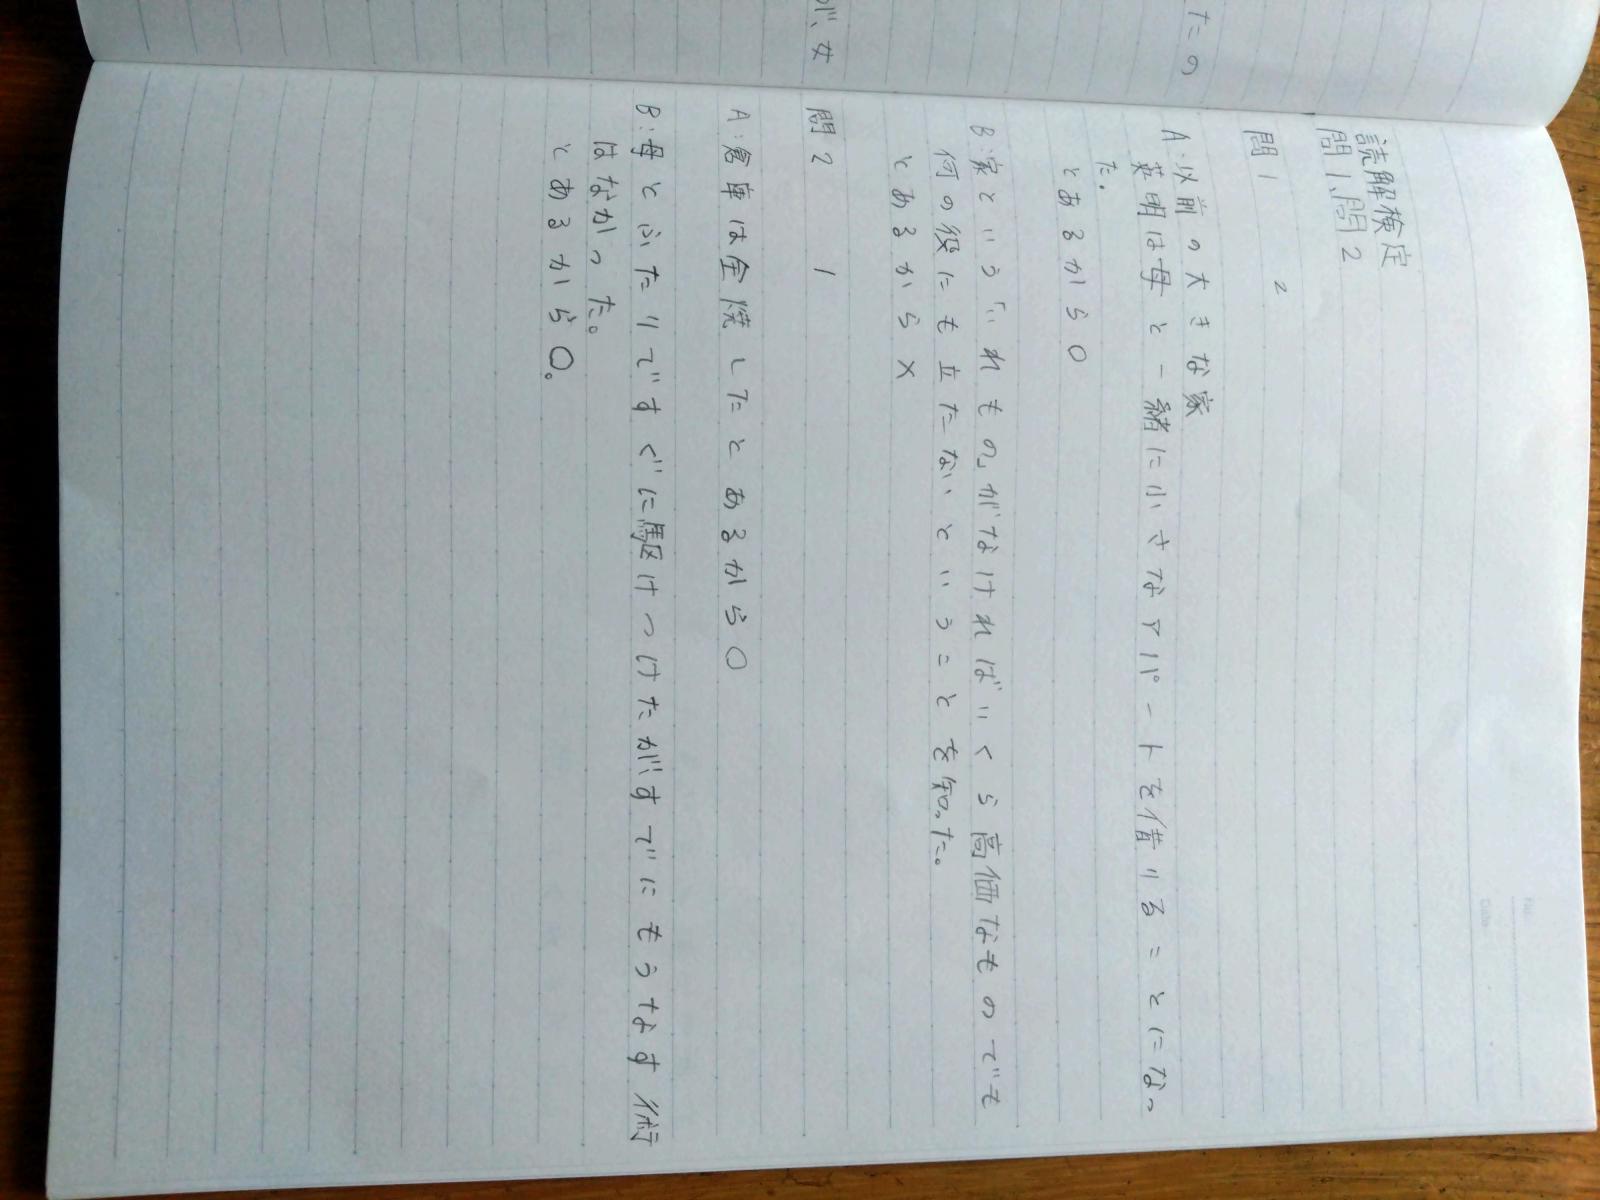 たの
が、女
No.
Date
読解検定
問1、問2
問1　2
A：以前の大きな家
英明は母と一緒に小さなアパートを借りることになっ
た。
とあるから○
B：家という「いれもの」がなければいくら高価なものでも
何の役にも立たないということを知った。
とあるから×
問2　1
A：倉庫は全焼したとあるから○
B：母とふたりですぐに駆けつけたがすでにもうなす術
はなかった。
とあるから○。